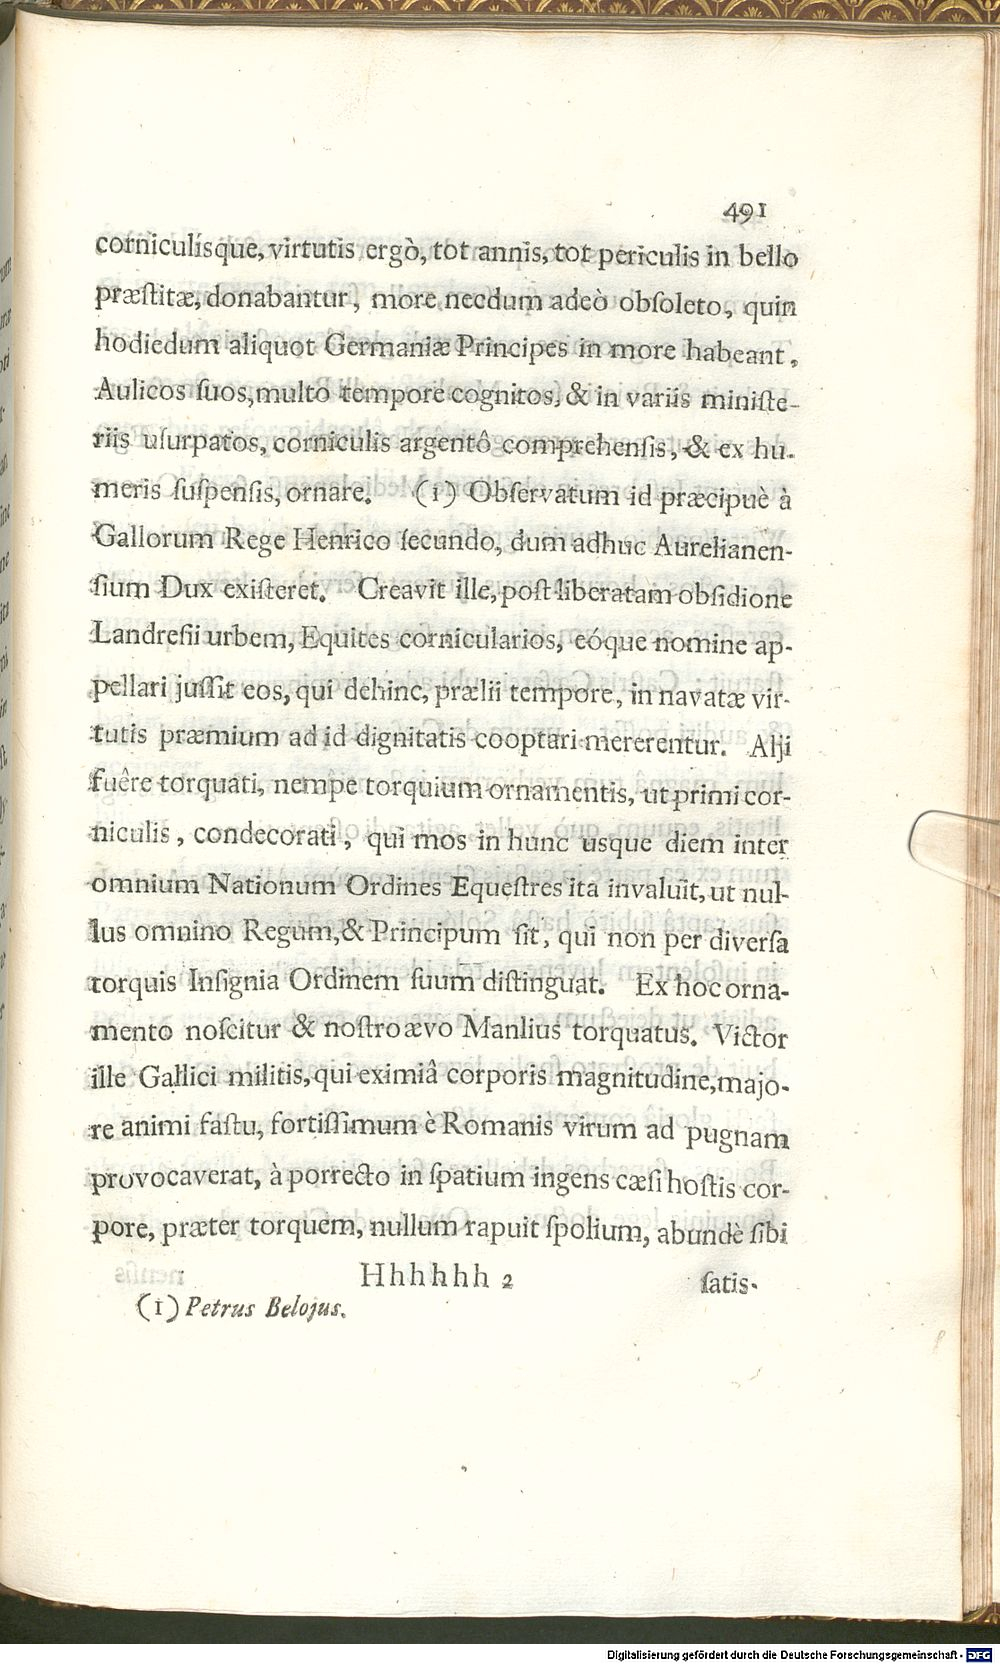 491
corniculisque, virtutis ergò, tot annis, tot periculis in bello
præſtitæ, donabantur, more necdum adeò obſoleto, quin
hodiedum aliquot Germaniæ Principes in more habeant,
Aulicos ſuos, multo tempore cognitos, & in variis miniſte-
riis uſurpatos, corniculis argentô comprehenſis, & ex hu-
meris ſuſpenſis, ornare. (1) Obſervatum id præcipuè à
Gallorum Rege Henrico ſecundo, dum adhuc Aurelianen-
ſium Dux exiſteret. Creavit ille, poſt liberatam obſidione
Landreſii urbem, Equites cornicularios, eóque nomine ap-
pellari juſſit eos, qui dehinc, prælii tempore, in navatæ vir-
tutis præmium ad id dignitatis cooptari mererentur. Alji
fuêre torquati, nempe torquium ornamentis, ut primi cor-
niculis, condecorati, qui mos in hunc usque diem inter
omnium Nationum Ordines Equeſtres ita invaluit, ut nul-
lus omnino Regum, & Principum ſit, qui non per diverſa
torquis Inſignia Ordinem ſuum diſtinguat. Ex hoc orna-
mento noſcitur & noſtro ævo Manlius torquatus. Victor
ille Gallici militis, qui eximiâ corporis magnitudine, majo-
re animi faſtu, fortiſſimum è Romanis virum ad pugnam
provocaverat, à porrecto in ſpatium ingens cæſi hoſtis cor-
pore, præter torquem, nullum rapuit ſpolium, abundè ſibi
Hhhhhh 2 ſatis-
(1) Petrus Belojus.
Digitalisierung gefördert durch die Deutsche Forschungsgemeinschaft - DFG